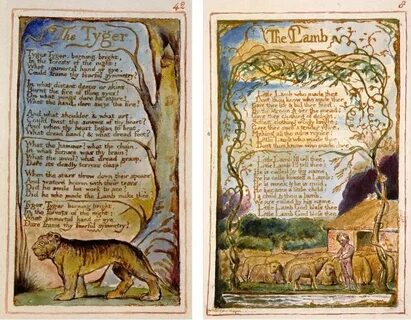 42
The Tyger
Tyger Tyger, burning bright,
In the forests of the night;
What immortal hand or eye,
Could frame thy fearful symmetry?
In what distant deeps or skies
Burnt the fire of thine eyes?
On what wings dare he aspire?
What the hand, dare sieze the fire?
And what shoulder, & what art,
Could twist the sinews of thy heart?
And when thy heart began to beat,
What dread hand? & what dread feet?
What the hammer? what the chain,
In what furnace was thy brain?
What the anvil? what dread grasp,
Dare its deadly terrors clasp?
When the stars threw down their spears
And water'd heaven with their tears:
Did he smile his work to see?
Did he who made the Lamb make thee?
Tyger Tyger burning bright,
In the forests of the night:
What immortal hand or eye,
Dare frame thy fearful symmetry?
8
The Lamb
Little Lamb who made thee
Dost thou know who made thee
Gave thee life & bid thee feed,
By the stream & o'er the mead;
Gave thee clothing of delight,
Softest clothing wooly bright;
Gave thee such a tender voice,
Making all the vales rejoice:
Little Lamb who made thee
Dost thou know who made thee
Little Lamb I'll tell thee,
Little Lamb I'll tell thee;
He is called by thy name,
For he calls himself a Lamb:
He is meek & he is mild,
He became a little child:
I a child & thou a lamb,
We are called by his name.
Little Lamb God bless thee,
Little Lamb God bless thee.